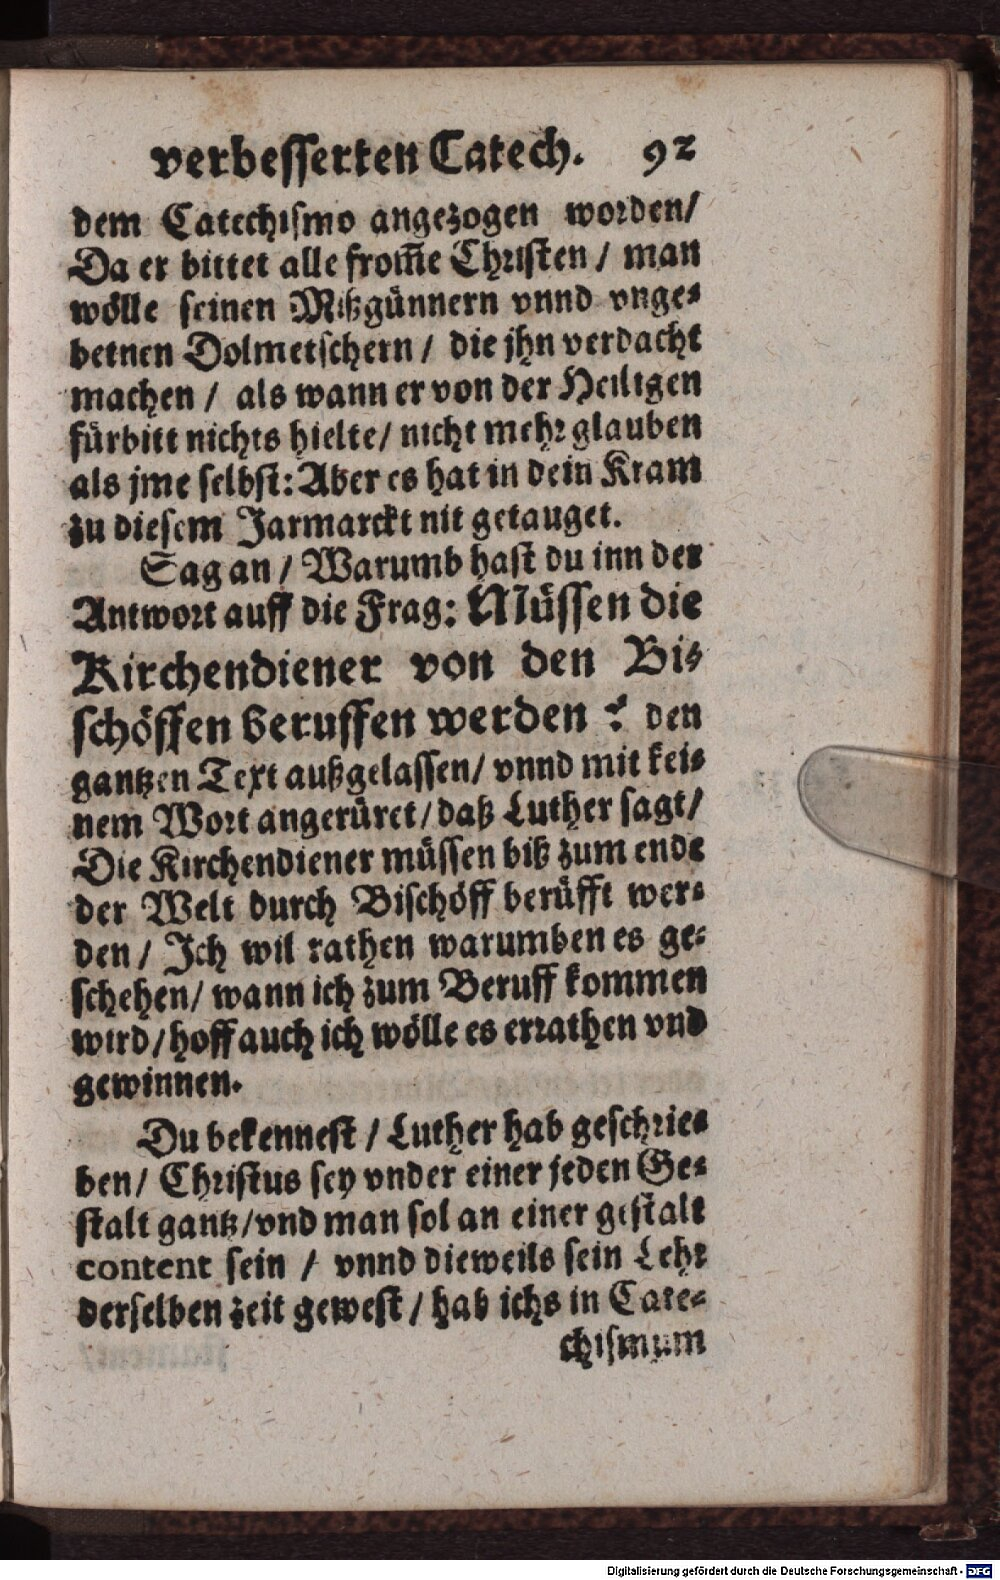 verbesserten Catech. 92
dem Catechismo angezogen worden/
Da er bittet alle from̃e Christen / man
wölle seinen Mißgünnern vnnd vnge⸗
betnen Dolmetschern / die jhn verdacht
machen / als wann er von der Heiligen
fürbitt nichts hielte/ nicht mehr glauben
als jme selbst: Aber es hat in dein Kram
zu diesem Jarmarckt nit getauget.
Sag an / Warumb hast du inn der
Antwort auff die Frag: Müssen die
Kirchendiener von den Bi⸗
schöffen beruffen werden? den
gantzen Text außgelassen/ vnnd mit kei⸗
nem Wort angerüret/ daß Luther sagt/
Die Kirchendiener müssen biß zum ende
der Welt durch Bischöff berüfft wer⸗
den/ Ich wil rathen warumben es ge⸗
schehen/ wann ich zum Beruff kommen
wird/ hoff auch ich wölle es errathen vnd
gewinnen.
Du bekennest / Luther hab geschrie⸗
ben/ Christus sey vnder einer jeden Ge⸗
stalt gantz/ vnd man sol an einer gestalt
content sein / vnnd dieweils sein Lehr
derselben zeit gewest / hab ichs in Cate⸗
chismum
Digitalisierung gefördert durch die Deutsche Forschungsgemeinschaft - DFG